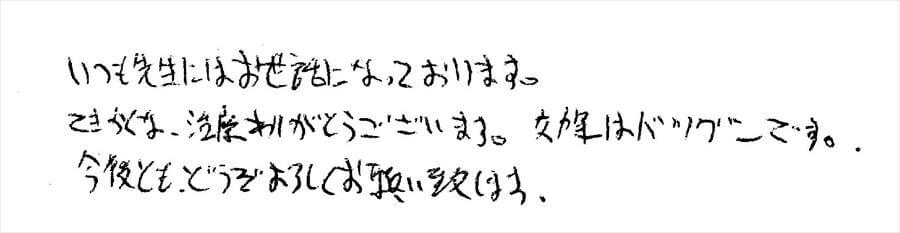 いつも先生にはお世話になっております。
てきかくな、治療ありがとうございます。効果はバツグンです。
今後とも、どうぞよろしくお願い致します、